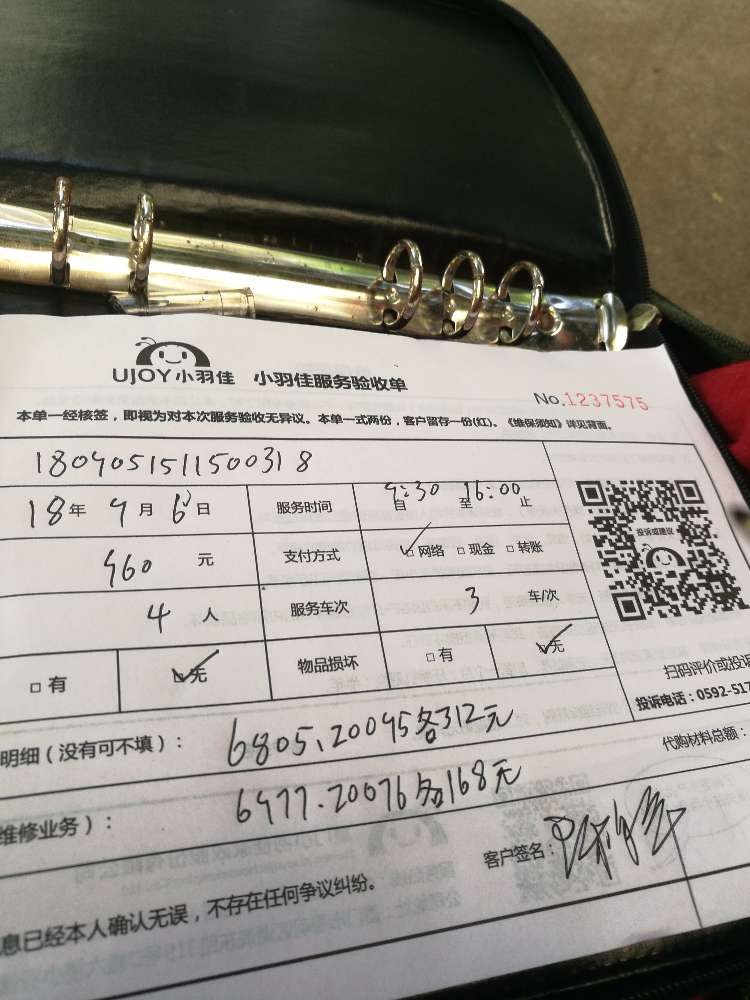 UJOY小羽佳 小羽佳服务验收单
No.1237575
本单一经核签，即视为对本次服务验收无异议。本单一式两份，客户留存一份(红)。《维保须知》详见背面。
180405151150031 8
18年 4月 6日 服务时间 9:30 自 至 16:00 止
投诉或建议
960 元 支付方式 ☑网络 □现金 □转账
4 人 服务车次 3 车/次
□有 ☑无 物品损坏 □有 ☑无
扫码评价或投诉
投诉电话：0592-517
明细（没有可不填）： 6805、20045各312元
代购材料总额：
维修业务）： 6477.20076各168元
客户签名：
息已经本人确认无误，不存在任何争议纠纷。